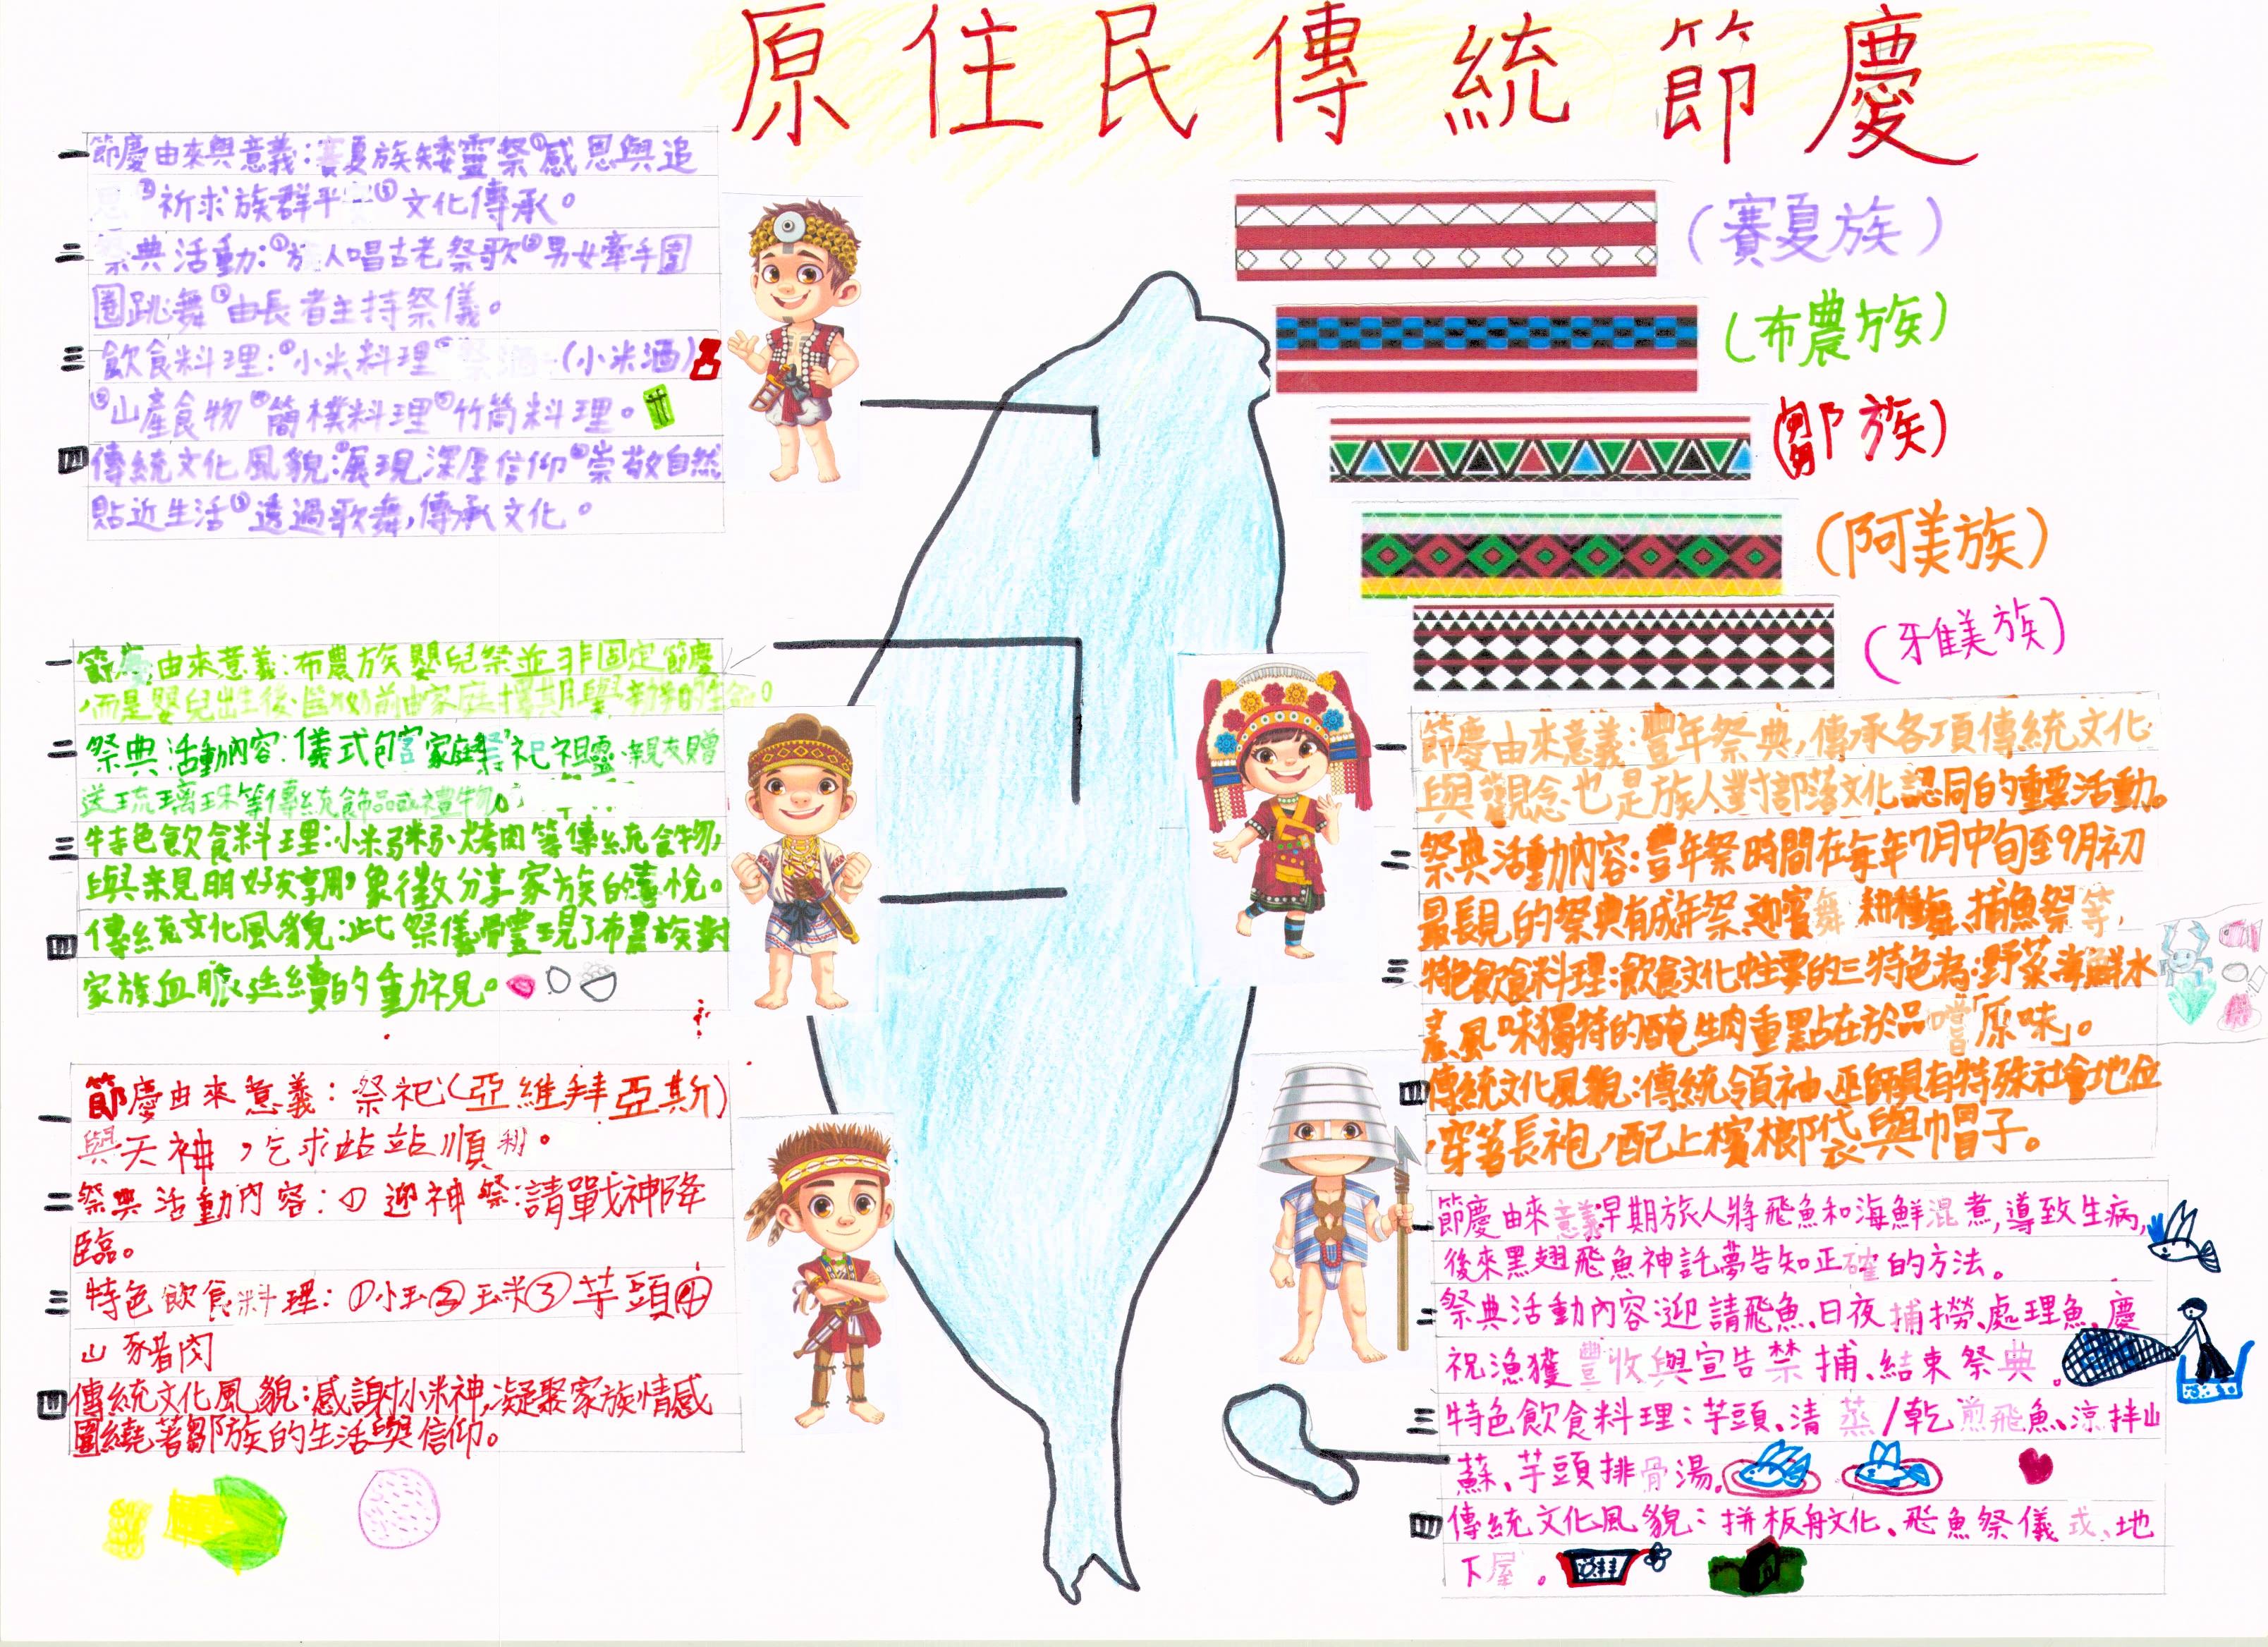 原住民傳統節慶
一 節慶由來與意義：賽夏族矮靈祭①感恩與追
思②祈求族群平安③文化傳承。
二 祭典活動：①族人唱古老祭歌②男女牽手圍
圈跳舞③由長者主持祭儀。
三 飲食料理：①小米料理②祭酒：(小米酒)
③山產食物④簡樸料理⑤竹筒料理。
四 傳統文化風貌：①展現深厚信仰②崇敬自然
貼近生活③透過歌舞，傳承文化。
一 節慶由來意義：布農族嬰兒祭並非固定節慶
，而是嬰兒出生後
二 祭典活動內容：儀式包含家庭祭祀祖靈、親友贈
送琉璃珠等傳統飾品或禮物。
三 特色飲食料理：小米粥、烤肉等傳統食物，
與親朋好友享用，象徵分享家族的喜悅。
四 傳統文化風貌：此祭儀體現了布農族對
家族血脈延續的重視。
一 節慶由來意義：祭祀(亞維拜亞斯)
與天神，乞求站站順利。
二 祭典活動內容：① 迎神祭：請戰神降
臨。
三 特色飲食料理：①小玉②玉米③芋頭④
山豬肉
四 傳統文化風貌：感謝小米神，凝聚家族情感
圍繞著鄒族的生活與信仰。
(賽夏族)
(布農族)
(鄒族)
(阿美族)
(雅美族)
一 節慶由來意義：豐年祭典，傳承各項傳統文化
與觀念也是族人對部落文化認同的重要活動。
二 祭典活動內容：豐年祭時間在每年7月中旬至9月初
最長見的祭典有成年祭、迎賓舞、耕種舞、捕魚祭等，
三 特色飲食料理：飲食文化中主要的三特色為：野菜、海鮮水
產、風味獨特的醃生肉重點在於品嚐「原味」。
四 傳統文化風貌：傳統領袖、巫師具有特殊社會地位
，穿著長袍，配上檳榔袋與帽子。
一 節慶由來意義：早期族人將飛魚和海鮮混煮，導致生病，
後來黑翅飛魚神託夢告知正確的方法。
二 祭典活動內容：迎請飛魚、日夜捕撈、處理魚、慶
祝漁獲豐收與宣告禁捕、結束祭典。
三 特色飲食料理：芋頭、清蒸/乾煎飛魚、涼拌山
蘇、芋頭排骨湯。
四 傳統文化風貌：拼板舟文化、飛魚祭儀式、地
下屋。